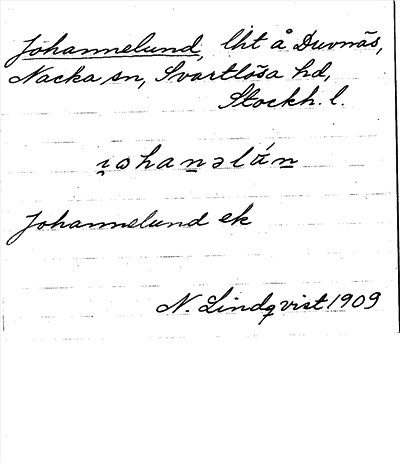 Johannelund, lht å Duvnäs,
Nacka sn, Svartlösa hd,
Stockh. l.
i̯ohan̠əlán̠
Johannelund ek
N. Lindqvist 1909